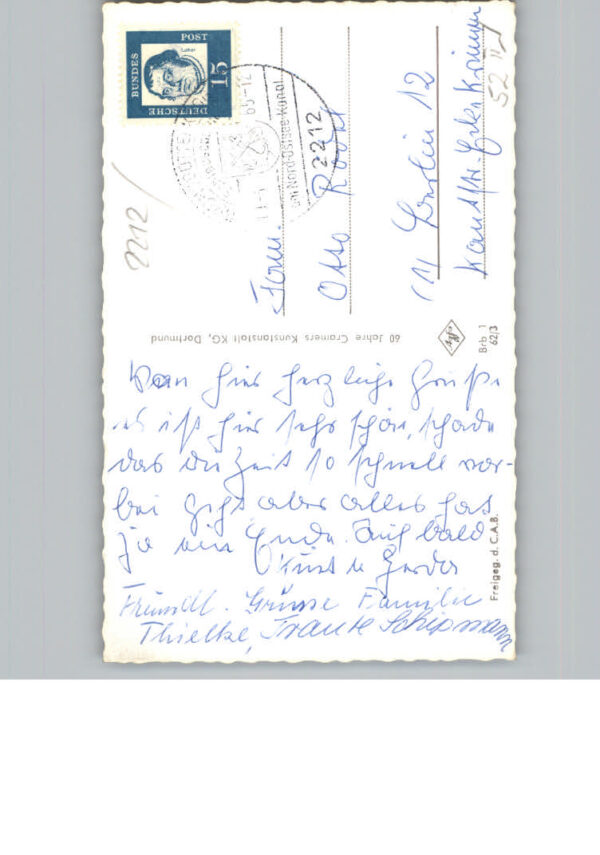 DEUTSCHE
BUNDES
POST
Luther
15
am Nord-Ostsee-Kanal
2212
Fam.
Otto
(1) Berlin 12
2212
52
60 Jahre Cramers Kunstanstalt KG, Dortmund
Brb 1
62/3
Freigeg. d. C.A.B.
Von hier herzliche Grüße
es ist hier sehr schön, schade
das die Zeit so schnell vor-
bei geht aber alles hat
ja ein Ende. Auf bald
Gerda
Freundl. Grüsse Familie
Thielke, Traute Schipmann